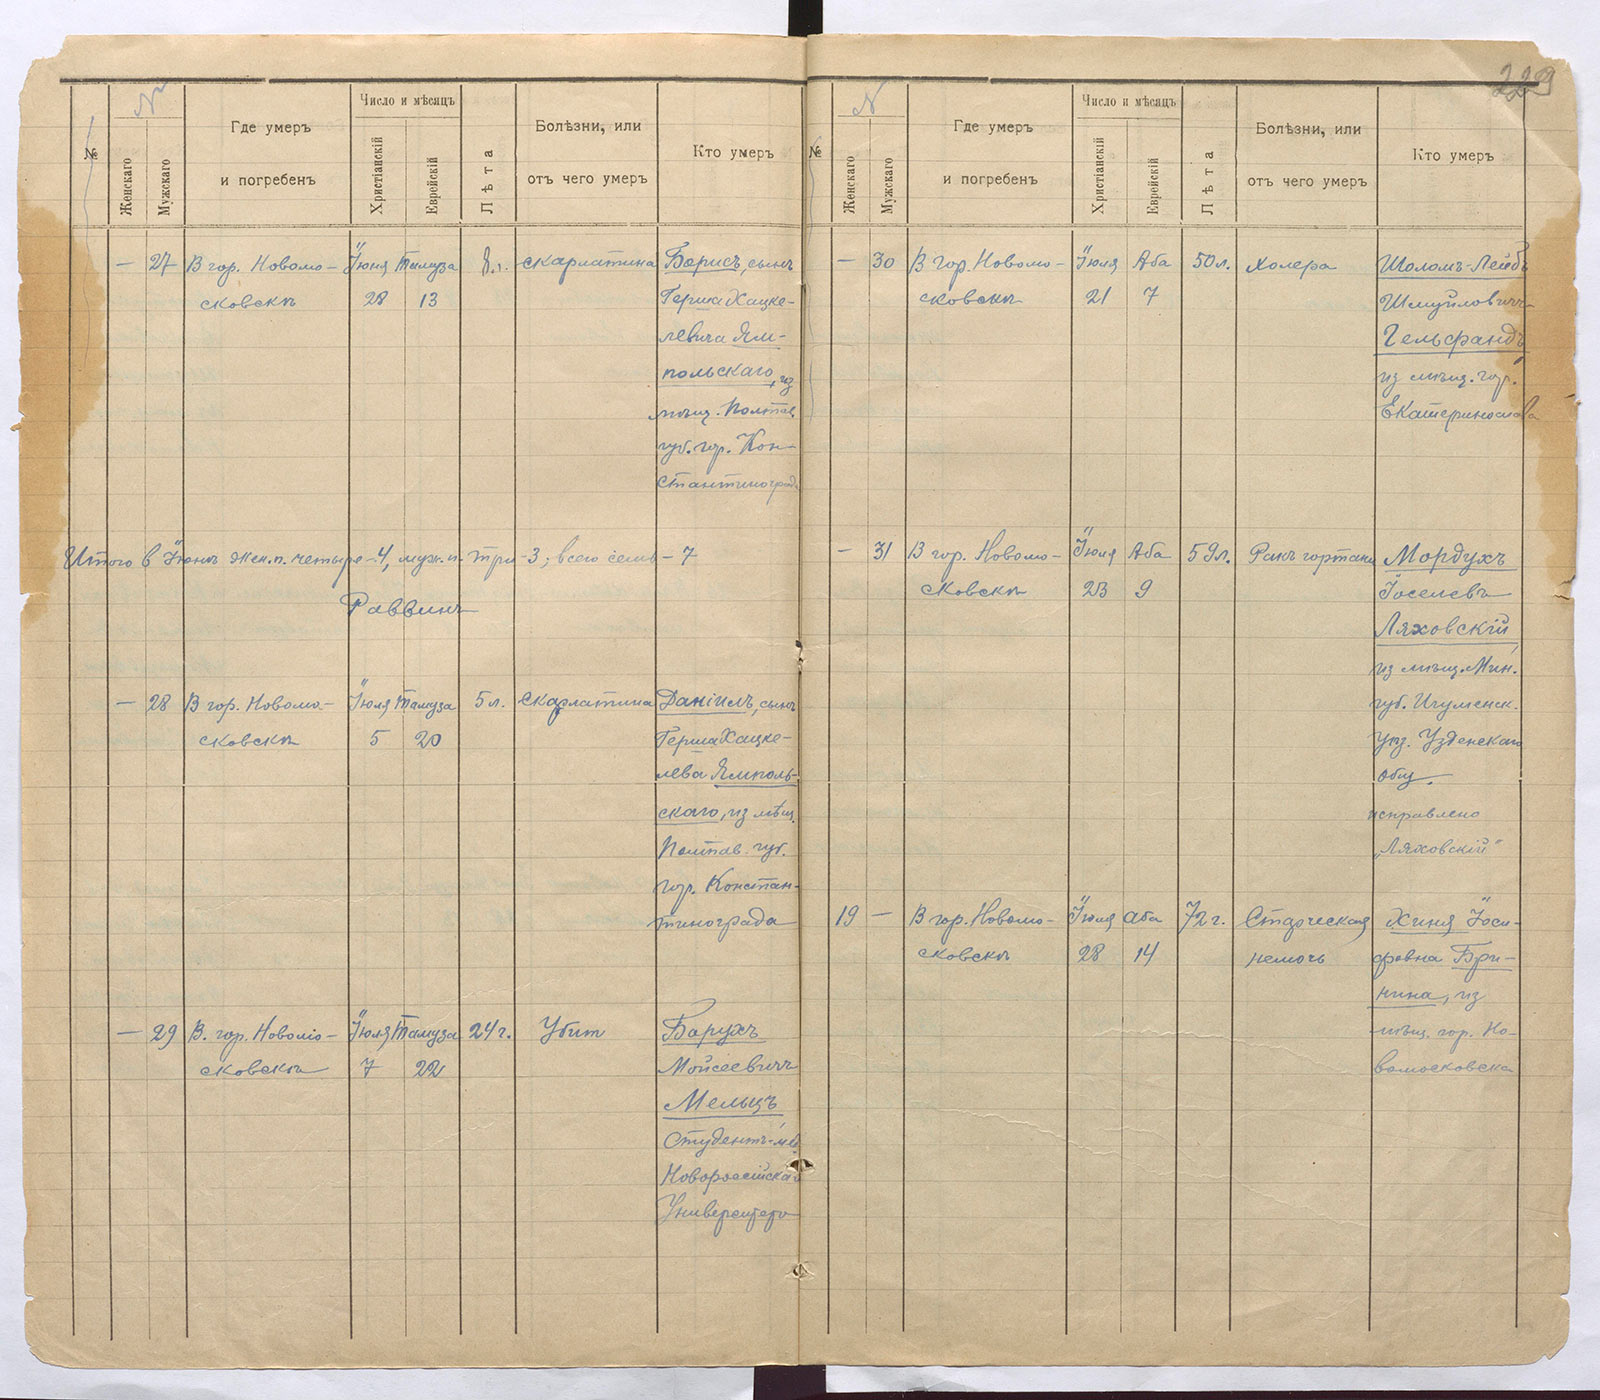 229
№
№
Женскаго
Мужскаго
Где умеръ
и погребенъ
Число и мѣсяцъ
Христіанскій
Еврейскій
Лѣта
Болѣзни, или
отъ чего умеръ
Кто умеръ
— 27 В гор. Новомо-
сковскѣ
Іюня Тамуза
28 13
8 л.
скарлатина
Борисъ, сынъ
Герша Хацке-
левича Ям-
польскаго, из
мѣщ. Полтав.
губ. гор. Кон-
стантинограда
Итого в Іюнѣ жен. п. четыре - 4, муж. п. три - 3; всего семь - 7
Раввинъ
— 28 В гор. Новомо-
сковскѣ
Іюля Тамуза
5 20
5 л.
скарлатина
Даніилъ, сынъ
Герша Хацке-
лева Ямполь-
скаго, из мѣщ.
Полтав. губ.
гор. Констан-
тинограда
— 29 В. гор. Новомо-
сковскѣ
Іюля Тамуза
7 22
24 г.
Убит
Барухъ
Мойсеевичъ
Мельцъ
Студентъ-
Новороссійска
Университета
№
№
Женскаго
Мужскаго
Где умеръ
и погребенъ
Число и мѣсяцъ
Христіанскій
Еврейскій
Лѣта
Болѣзни, или
отъ чего умеръ
Кто умеръ
— 30 В гор. Новомо-
сковскѣ
Іюля Аба
21 7
50 л.
холера
Шоломъ-Лейбъ
Шмуйловичъ
Гельфандъ
из мѣщ. гор.
Екатеринослава
— 31 В гор. Новомо-
сковскѣ
Іюля Аба
23 9
59 л.
Ракъ гортани
Мордухъ
Іоселевъ
Ляховскій,
из мѣщ. Мин.
губ. Игуменск.
уѣз. Узденскаго
общ.
исправлено
„Ляховскій"
19 — В гор. Новомо-
сковскѣ
Іюля Аба
28 14
72 г.
Старческая
немочь
Хиня Іоси-
фовна Бри-
нина, из
мѣщ. гор. Но-
вомосковска